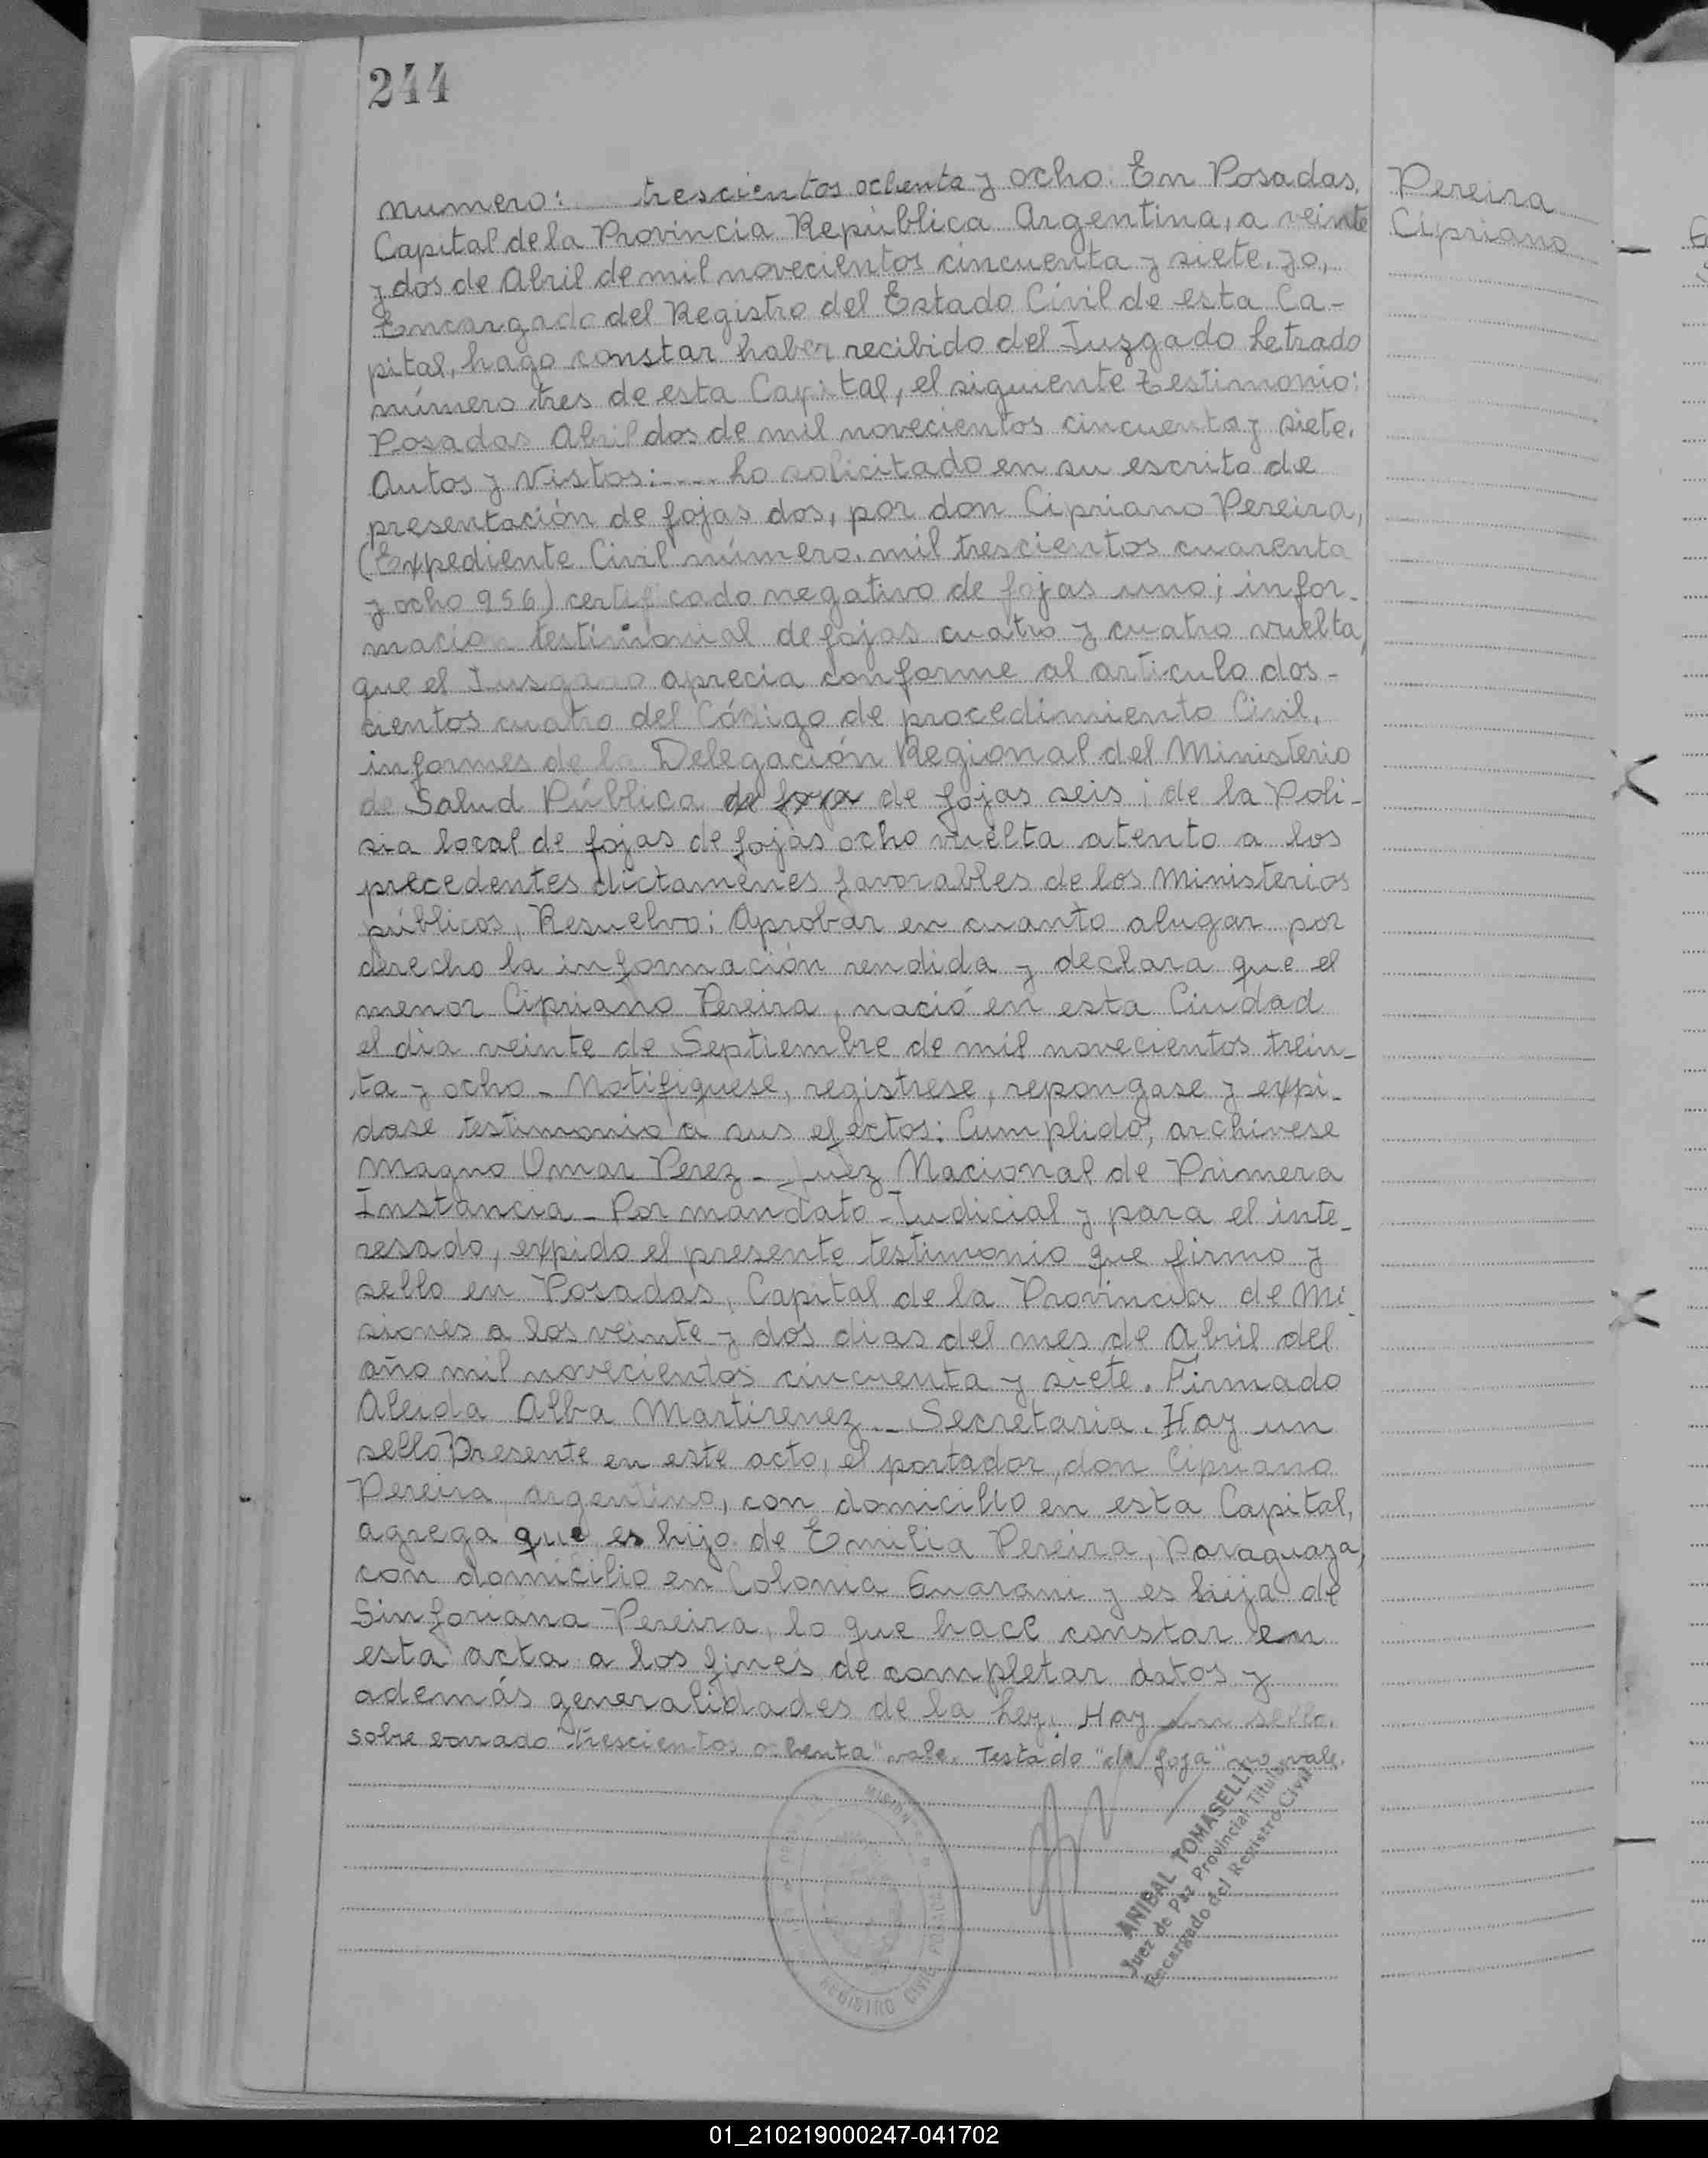 244
numero: trescientos ochenta y ocho. En Posadas,
Capital de la Provincia República Argentina, a veinte
y dos de Abril de mil novecientos cincuenta y siete, yo,
Encargado del Registro del Estado Civil de esta Ca-
pital, hago constar haber recibido del Juzgado Letrado
número tres de esta Capital, el siguiente testimonio:
Posadas Abril dos de mil novecientos cincuenta y siete.
Autos y Vistos:.... ho solicitado en su escrito de
presentación de fojas dos, por don Cipriano Pereira,
(Expediente Civil número. mil trescientos cuarenta
y ocho 956) certificado negativo de fojas uno; infor-
macion testimonial de fojas cuatro y cuatro vuelta,
que el Jusgado aprecia conforme al articulo dos-
cientos cuatro del Código de procedimiento Civil,
informes de la Delegación Regional del Ministerio
de Salud Pública de foja de fojas seis; de la Poli-
sia local de fojas de fojas ocho vuelta atento a los
precedentes dictamenes favorables de los Ministerios
públicos, Resuelvo: Aprobar en cuanto alugar por
derecho la información rendida y declara que el
menor Cipriano Pereira, nació en esta Ciudad
el dia veinte de Septiembre de mil novecientos trein-
ta y ocho - Notifiquese, registrese, repongase y expi-
dase testimonio a sus efectos: Cumplido, archivese
Magno Omar Perez - Juez Nacional de Primera
Instancia - Por mandato - Judicial y para el inte-
resado, expido el presente testimonio que firmo y
sello en Posadas, Capital de la Provincia de Mi
siones a los veinte y dos dias del mes de Abril del
año mil novecientos cincuenta y siete. Firmado
Aleida Alba Martirenez - Secretaria. Hay un
sello Presente en este acto, el portador, don Cipriano
Pereira, argentino, con domicilio en esta Capital,
agrega que es hijo de Emilia Pereira, Paraguaya,
con domicilio en Colonia Guarani y es hija de
Sinforiana Pereira, lo que hace constar en
esta acta a los fines de completar datos y
además generalidades de la Ley. Hay un sello.
sobre borrado "trescientos ochenta" vale. Testado "de foja" no vale.
Pereira
Cipriano
REGISTRO CIVIL POSADAS
ANIBAL TOMASELLI
Juez de Paz Provincial Titular
Encargado del Registro Civil
01_210219000247-041702